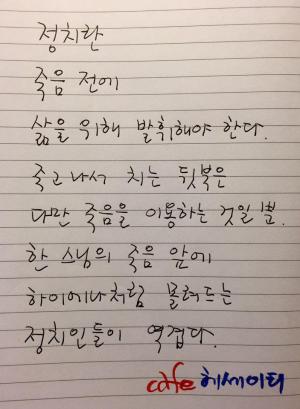 정치란
죽음 전에
삶을 위해 발휘해야 한다.
죽고나서 치는 뒷북은
다만 죽음을 이용하는 것일 뿐.
한 스님의 죽음 앞에
하이에나처럼 몰려드는
정치인들이 역겹다.
cafe 헤세이티